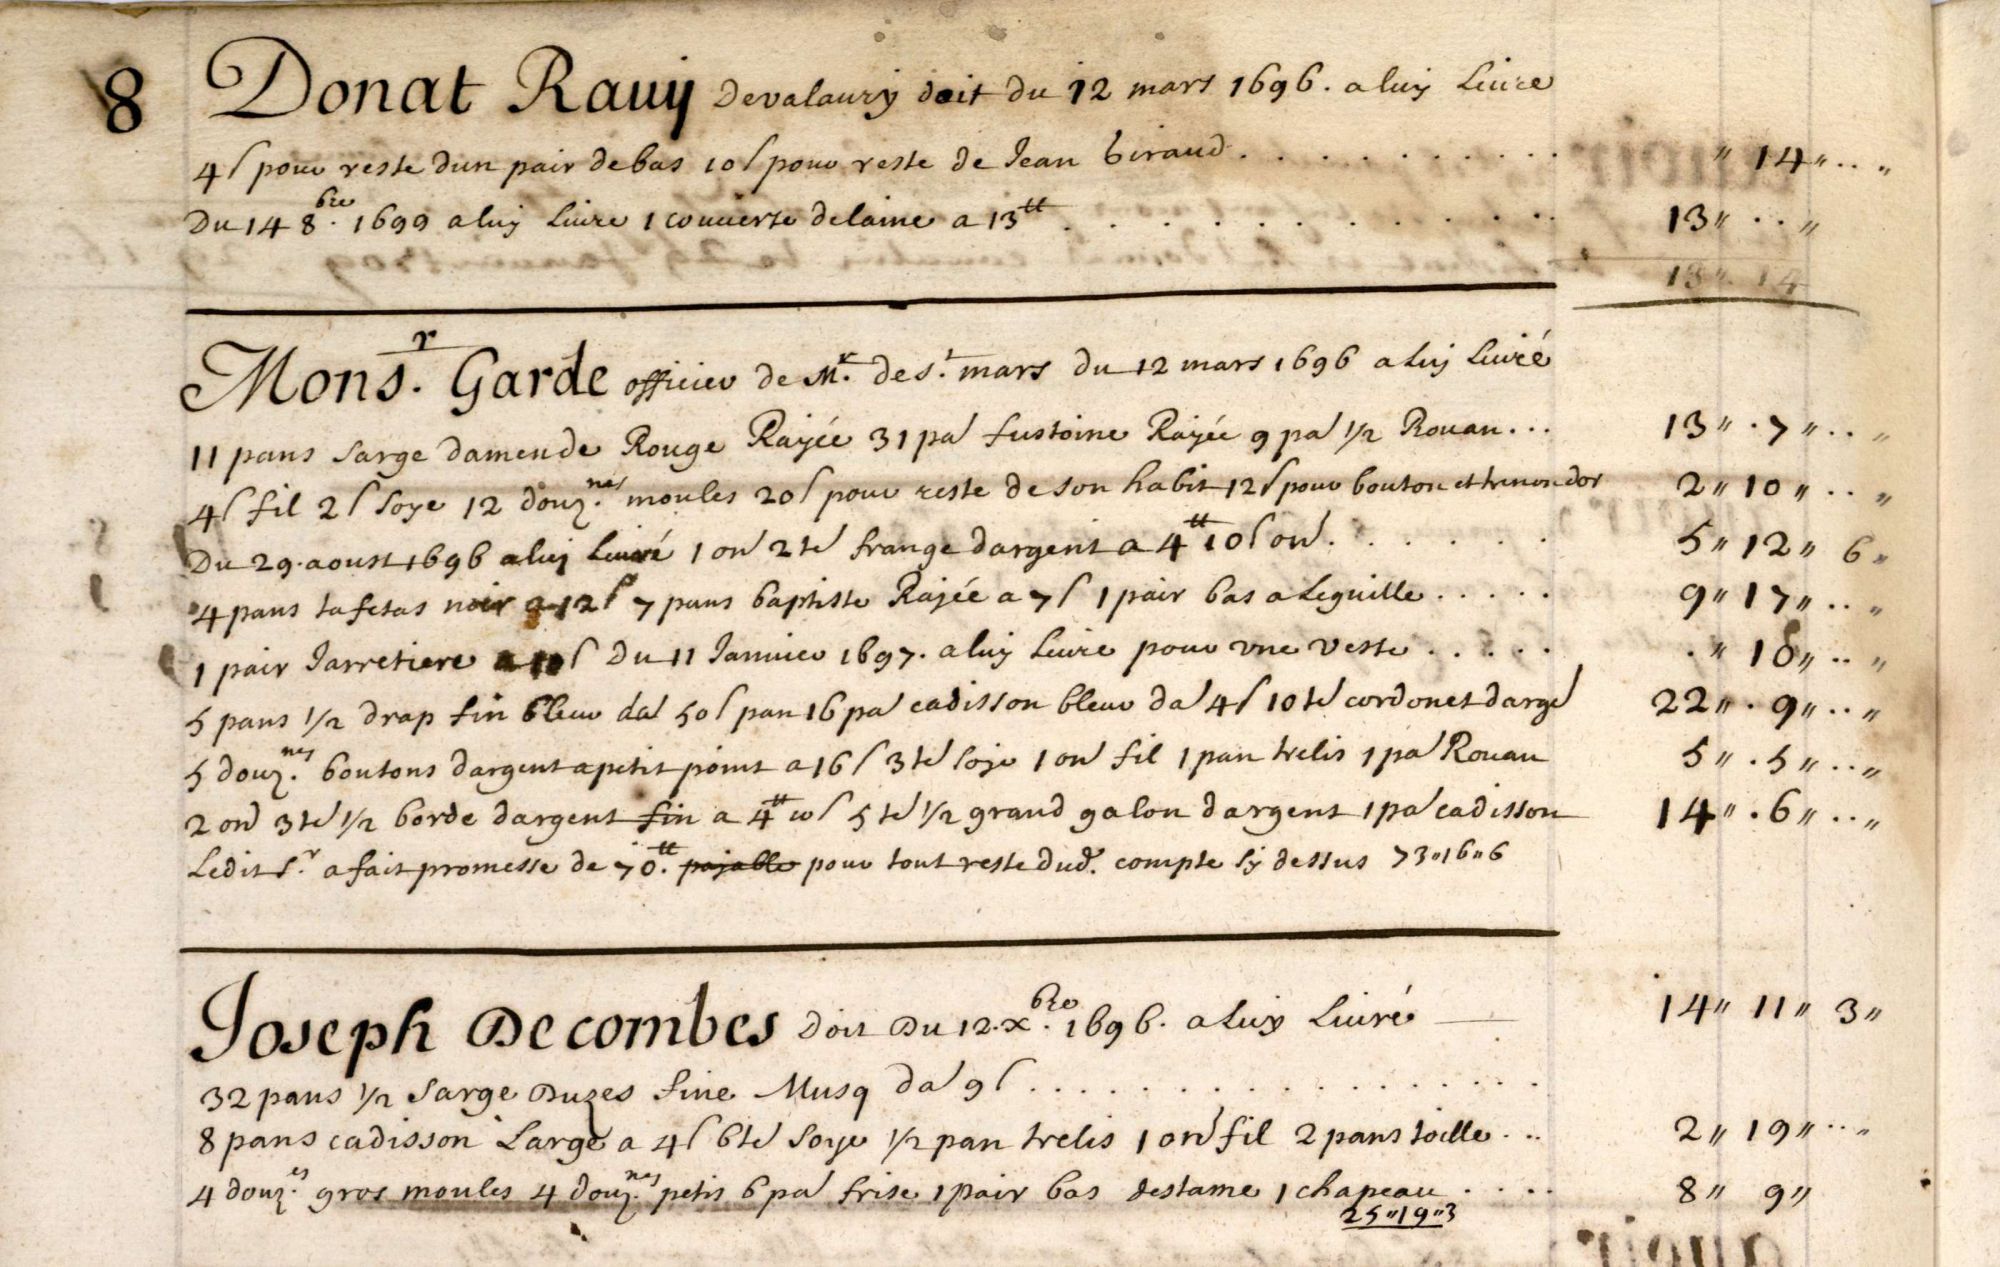 8 Donat Rauy devalaury doit du 12 mars 1696. a luy Liure
4ſ pour reste dun pair debas 10ſ pour reste de Jean Giraud . . . . . . . . . . " 14 " .. "
Du 14 8.bre 1699 a luy Liure 1 couuerte delaine a 13tt . . . . . . . . . . 13 " .. "
13 " 14
Mons.r Garde officier de M.r de s.t mars du 12 mars 1696 a luy Liuré
11 pans sarge damende Rouge Rayée 31 paſ fustoine Rayée 9 paſ 1/2 Rouan ... 13 " . 7 " .. "
4ſ fil 2ſ soye 12 douz.nes moules 20ſ pour reste de son habit 12ſ pour bouton et dor 2 " 10 " .. "
Du 29. aoust 1696 a luy Liuré 1 onſ 2 teſ frange dargent a 4tt 10ſ onſ . . . . . . 5 " 12 " 6 "
4 pans tafetas noir a 12ſ 7 pans baptiste Rajée a 7ſ 1 pair bas a Leguille . . . . . 9 " 17 " .. "
1 pair Jarretiere a 10ſ Du 11 Januier 1697. a luy Liure pour vne veste . . . . . . " 18 " .. "
5 pans 1/2 drap fin bleu daſ 50ſ pan 16 paſ cadisson bleu daſ 4ſ 10 teſ cordonet dargſ 22 " . 9 " .. "
5 douz.nes boutons dargent a petit point a 16ſ 3 teſ soye 1 onſ fil 1 pan trelis 1 paſ Rouan 5 " . 5 " .. "
2 onſ 3 teſ 1/2 borde dargent fin a 4tt 10ſ 5 teſ 1/2 grand galon dargent 1 paſ cadisson 14 " . 6 " .. "
Ledit s.r a fait promesse de 70.tt pajable pour tout reste dud. compte sy dessus 73 " 16 " 6
Joseph Decombes Doit Du 12. x.bre 1696. a luy Liuré 14 " 11 " 3 "
32 pans 1/2 sarge Duzes fine Musq daſ 9ſ . . . . . . . . . . . . . .
8 pans cadisson Large a 4ſ 6 teſ soye 1/2 pan trelis 1 onſ fil 2 pans toille . .. 2 " 19 " .. "
4 douz.es gros moules 4 douz.nes petis 6 paſ frise 1 pair bas destame 1 chapeau . . . . 8 " 9 "
25 " 19 " 3